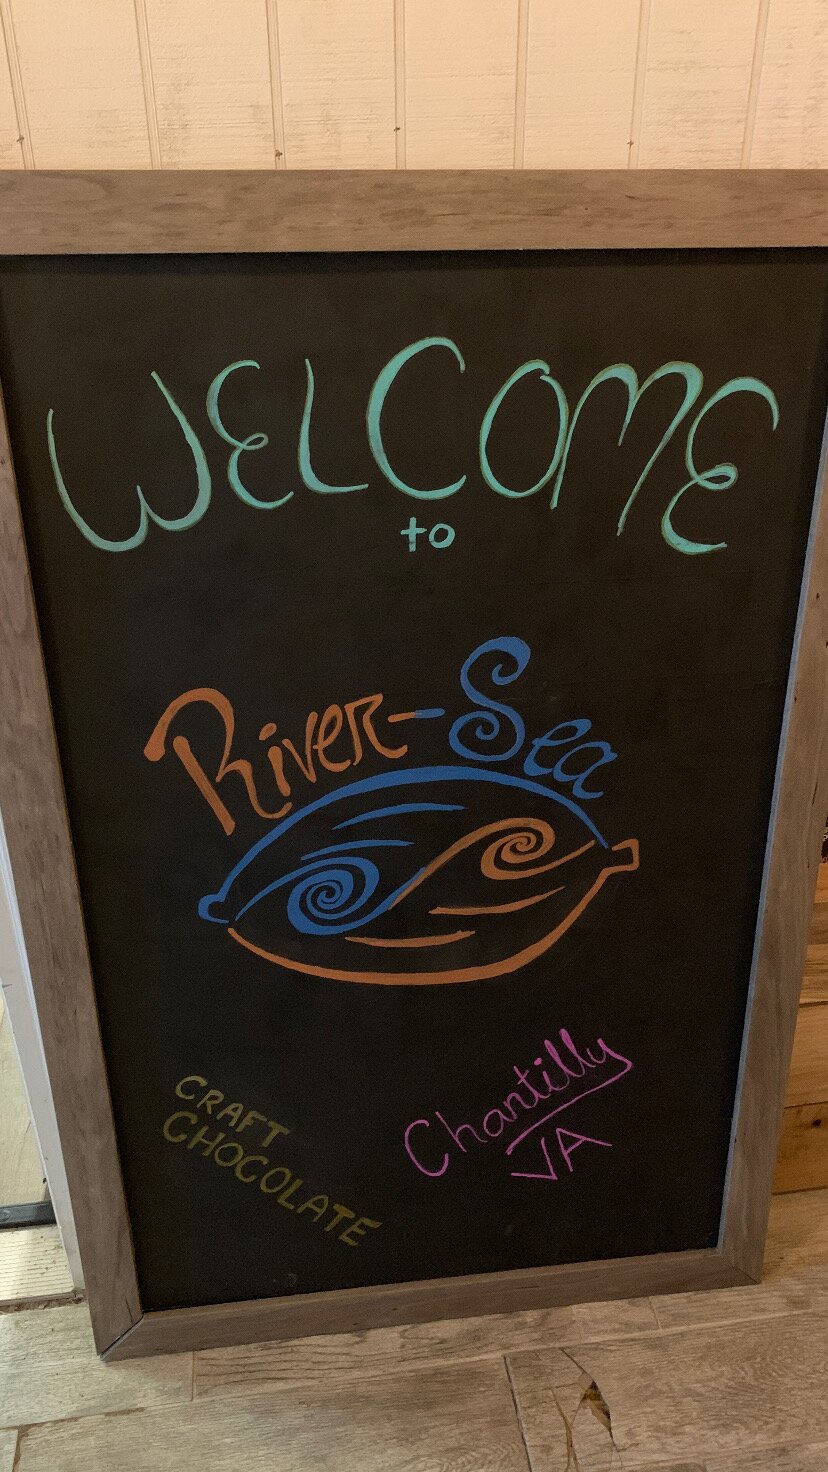 WELCOME
to
River-Sea
CRAFT
CHOCOLATE
Chantilly
VA